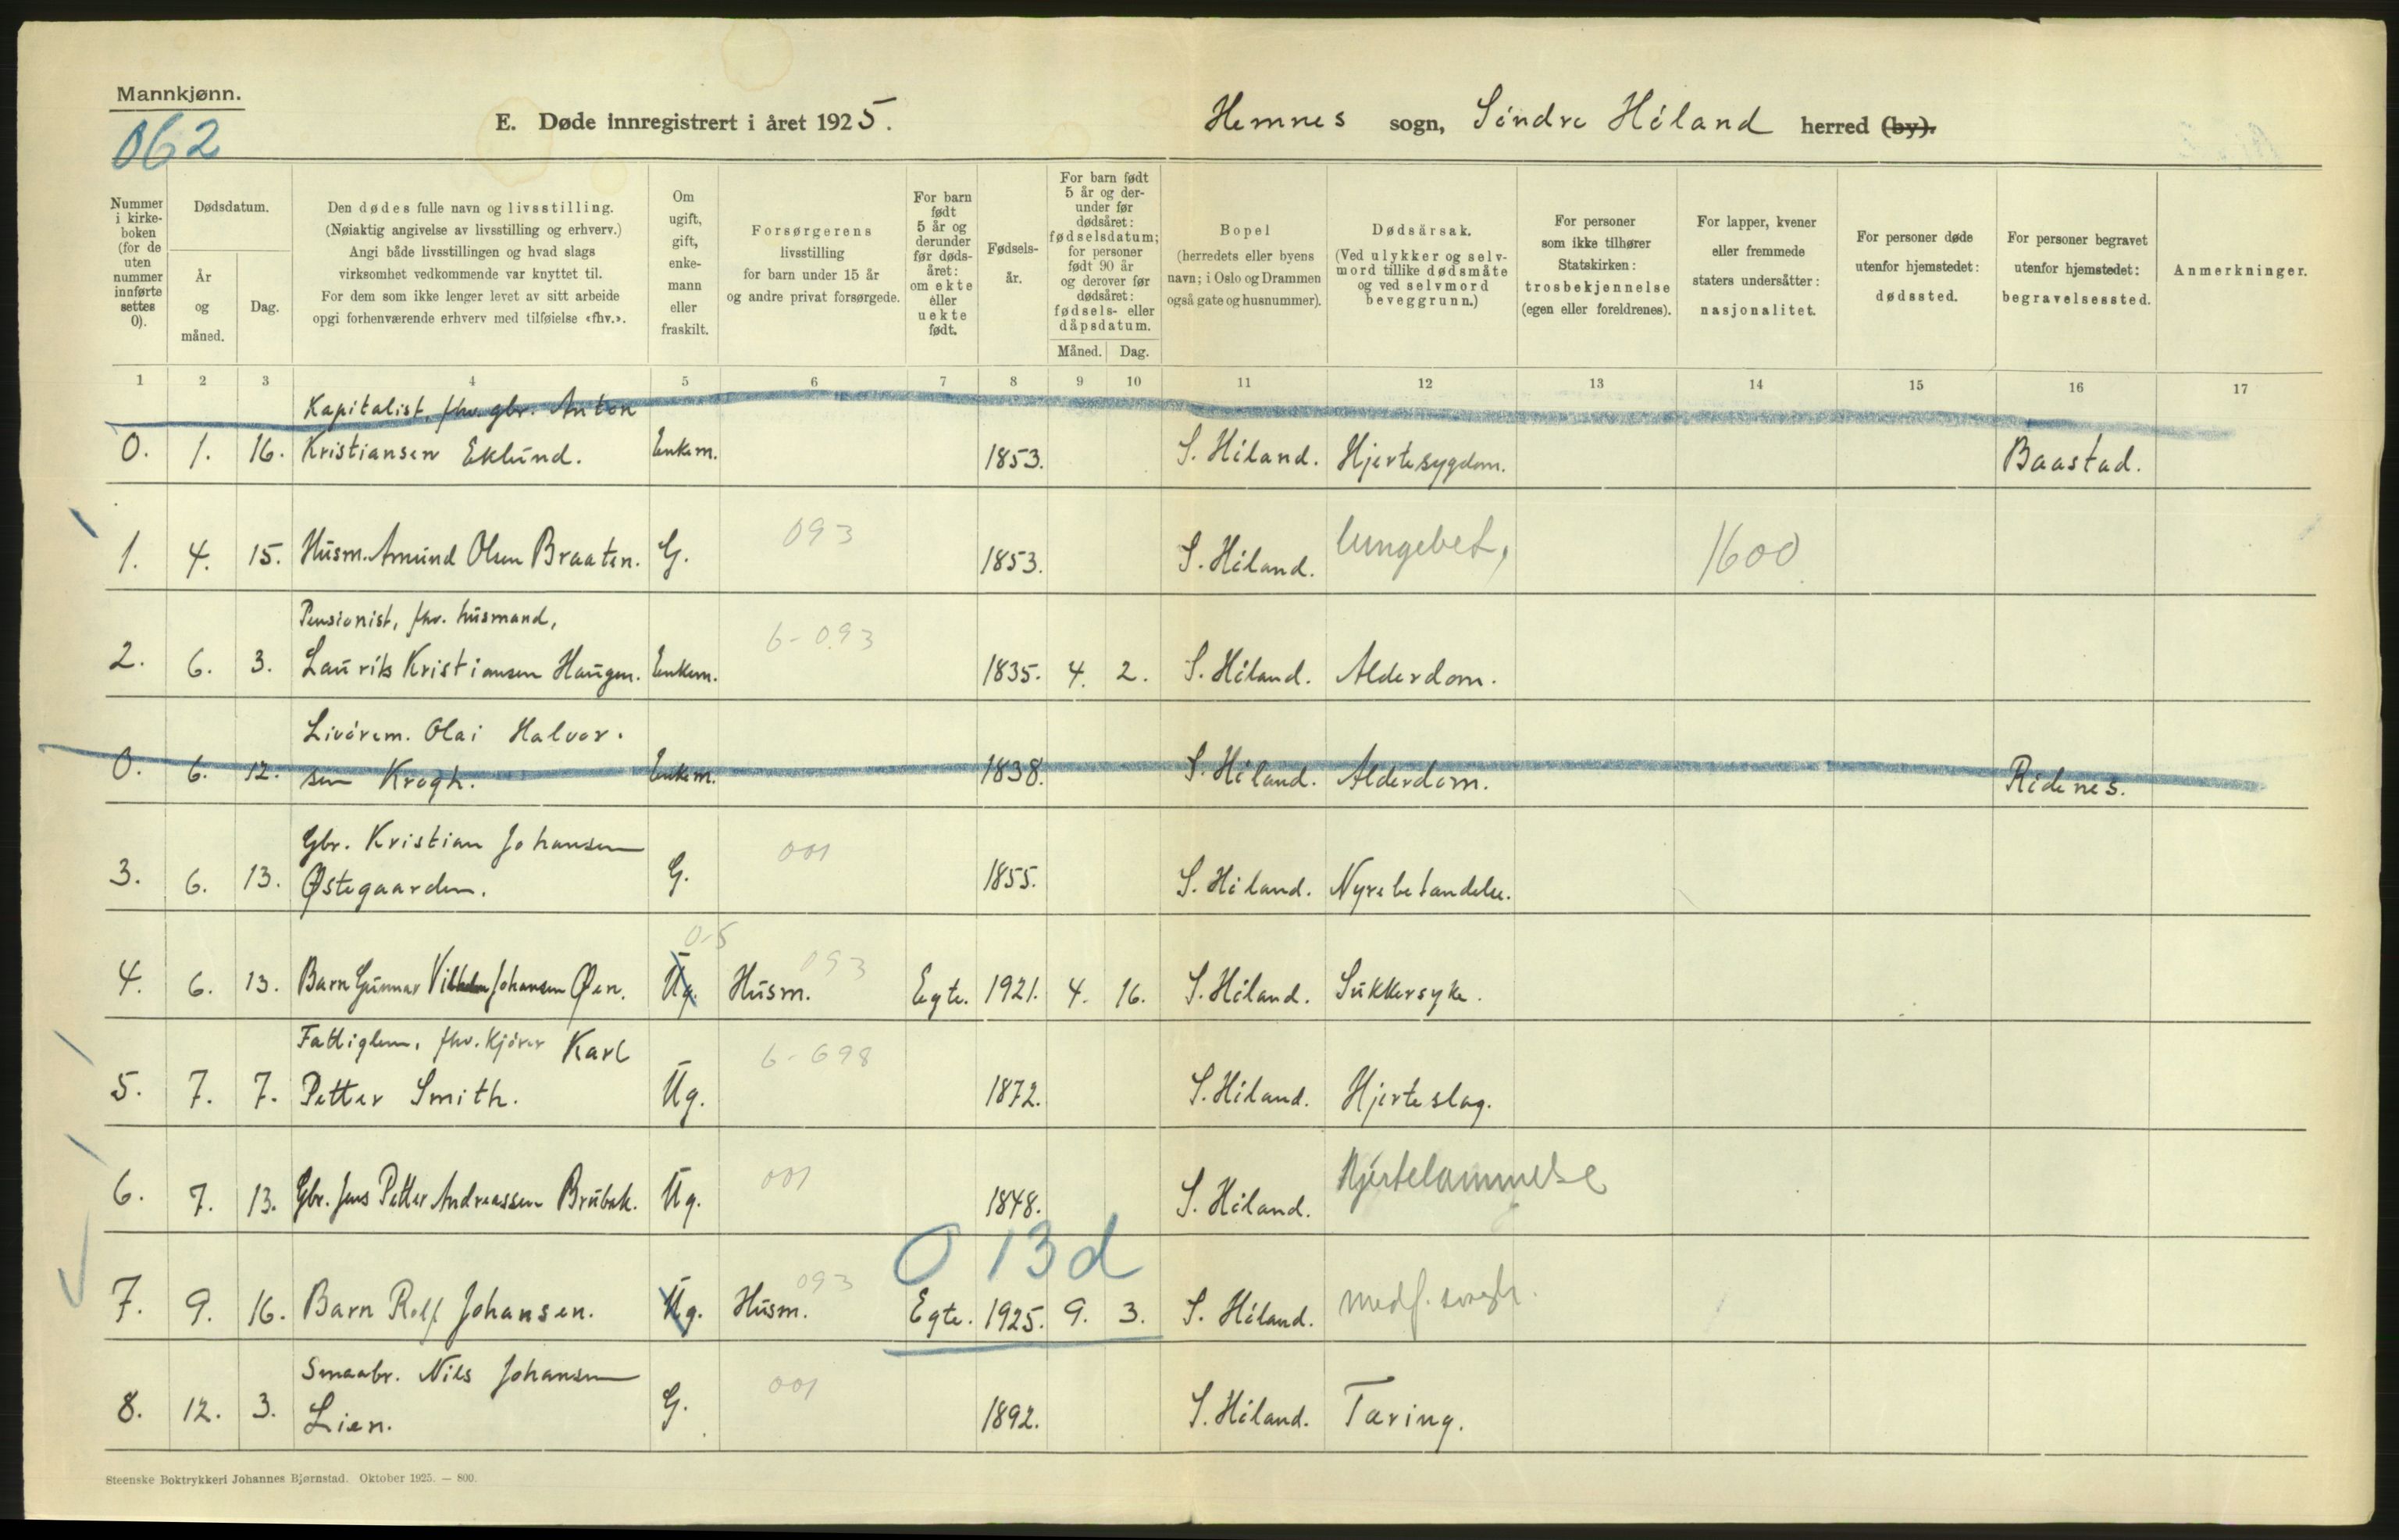 Mannkjønn.
062
E. Døde innregistrert i året 1925.
Hemnes sogn, Søndre Høland herred (by).
Nummer i kirke- boken (for de uten nummer innførte settes 0).
Dødsdatum.
År og måned.
Dag.
Den dødes fulle navn og livsstilling.
(Nøiaktig angivelse av livsstilling og erhverv.)
Angi både livsstillingen og hvad slags
virksomhet vedkommende var knyttet til.
For dem som ikke lenger levet av sitt arbeide
opgi forhenværende erhverv med tilføielse «fhv.».
Om ugift, gift, enke- mann eller fraskilt.
Forsørgerens
livsstilling
for barn under 15 år
og andre privat forsørgede.
For barn født 5 år og derunder før døds- året: om ekte eller uekte født.
Fødsels- år.
For barn født 5 år og der- under før dødsåret: fødselsdatum; for personer født 90 år og derover før dødsåret: fødsels- eller dåpsdatum.
Måned. Dag.
Bopel
(herredets eller byens
navn; i Oslo og Drammen
også gate og husnummer).
Dødsårsak.
(Ved ulykker og selv-
mord tillike dødsmåte
og ved selvmord
beveggrunn.)
For personer
som ikke tilhører
Statskirken:
trosbekjennelse
(egen eller foreldrenes).
For lapper, kvener
eller fremmede
staters undersåtter:
nasjonalitet.
For personer døde
utenfor hjemstedet:
dødssted.
For personer begravet
utenfor hjemstedet:
begravelsessted.
Anmerkninger.
1 2 3 4 5 6 7 8 9 10 11 12 13 14 15 16 17
Kapitalist, fhv. gbr. Anton
0. 1. 16. Kristiansen Eklund. Enkem. 1853. S. Høland. Hjertesygdom. Baastad.
093 lungebet, 1600
1. 4. 15. Husm. Amund Olsen Braaten. G. 1853. S. Høland.
Pensionist, fhv. husmand,
6-093
2. 6. 3. Laurits Kristiansen Haugen. Enkem. 1835. 4. 2. S. Høland. Alderdom.
Livørem. Olai Halvor-
0. 6. 12. sen Krogh. Enkem. 1838. S. Høland. Alderdom. Rødenes.
Gbr. Kristian Johansen
001
3. 6. 13. Østegaarden. G. 1855. S. Høland. Nyrebetændelse.
0-5 093
4. 6. 13. Barn Gunnar Vilhelm Johansen Øen. Ug. Husm. Egte. 1921. 4. 16. S. Høland. Sukkersyke.
Fattiglem, fhv. kjører Karl
6-698
5. 7. 7. Petter Smith. Ug. 1872. S. Høland. Hjerteslag.
001 Hjertelammelse
6. 7. 13. Gbr. Jens Petter Andreassen Brubæk. Ug. 1848. S. Høland.
0 13d
093
7. 9. 16. Barn Rolf Johansen. Ug. Husm. Egte. 1925. 9. 3. S. Høland. medf. svagh.
Smaabr. Nils Johansen
001
8. 12. 3. Lien. G. 1892. S. Høland. Tæring.
Steenske Boktrykkeri Johannes Bjørnstad. Oktober 1925. — 800.